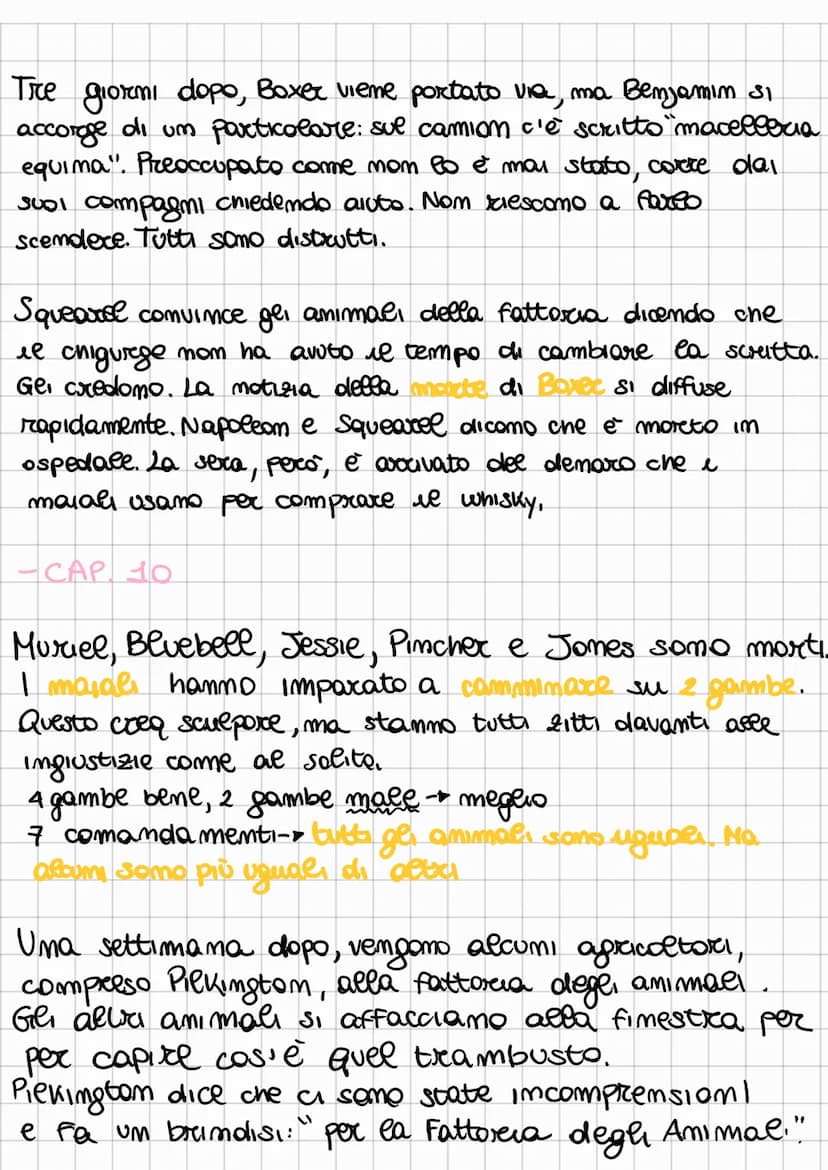 Tre giorni dopo, Boxer viene portato via, ma Benjamin si
accorge di un particolare: sul camion c'è scritto "macelleria
equina". Preoccupato come non lo è mai stato, corre dai
suoi compagni chiedendo aiuto. Non riescono a farlo
scendere. Tutti sono distrutti.
Squearel convince gli animali della fattoria dicendo che
il chigurge non ha avuto il tempo di cambiare la scritta.
Gli credono. La notizia della morte di Boxer si diffuse
rapidamente. Napoleon e Squearel dicono che è morto in
ospedale. La sera, però, è arrivato del denaro che i
maiali usano per comprare il whisky.
-CAP. 10
Muriel, Bluebell, Jessie, Pincher e Jones sono morti.
I maiali hanno imparato a cammminare su 2 gambe.
Questo crea scalpore, ma stanno tutti zitti davanti alle
ingiustizie come al solito.
4 gambe bene, 2 gambe male → meglio
7 comandamenti → tutti gli animali sono uguali. Ma
alcuni sono più uguali di altri
Una settimana dopo, vengono alcuni agricoltori,
compreso Pilkington, alla fattoria degli animali.
Gli altri animali si affacciano alla finestra per
per capire cos'è quel trambusto.
Pilkington dice che ci sono state incomprensioni
e fa un brindisi: "per la Fattoria degli Animali"